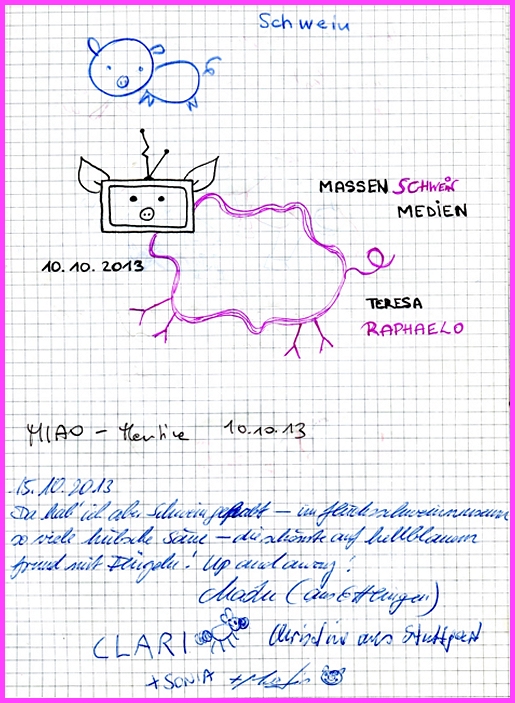 Schwein
MASSEN SCHWEIN
MEDIEN
10.10.2013
TERESA
RAPHAELO
MIAO - 10.10.13
15.10.2013
Da hab' ich aber Schwein gehabt - im Glücksschweinmuseum
so viele hübsche Säue - die schönste auf hellblauem
grund mit Flügeln! Up and away!
(aus Ettlingen)
CLARI Christine aus Stuttgart
+ SONIA +